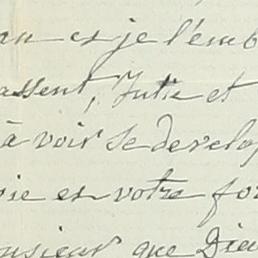 an et je l'emb
assent, Julie et
à voir se develop
vie et votre for
nsieur que Dieu